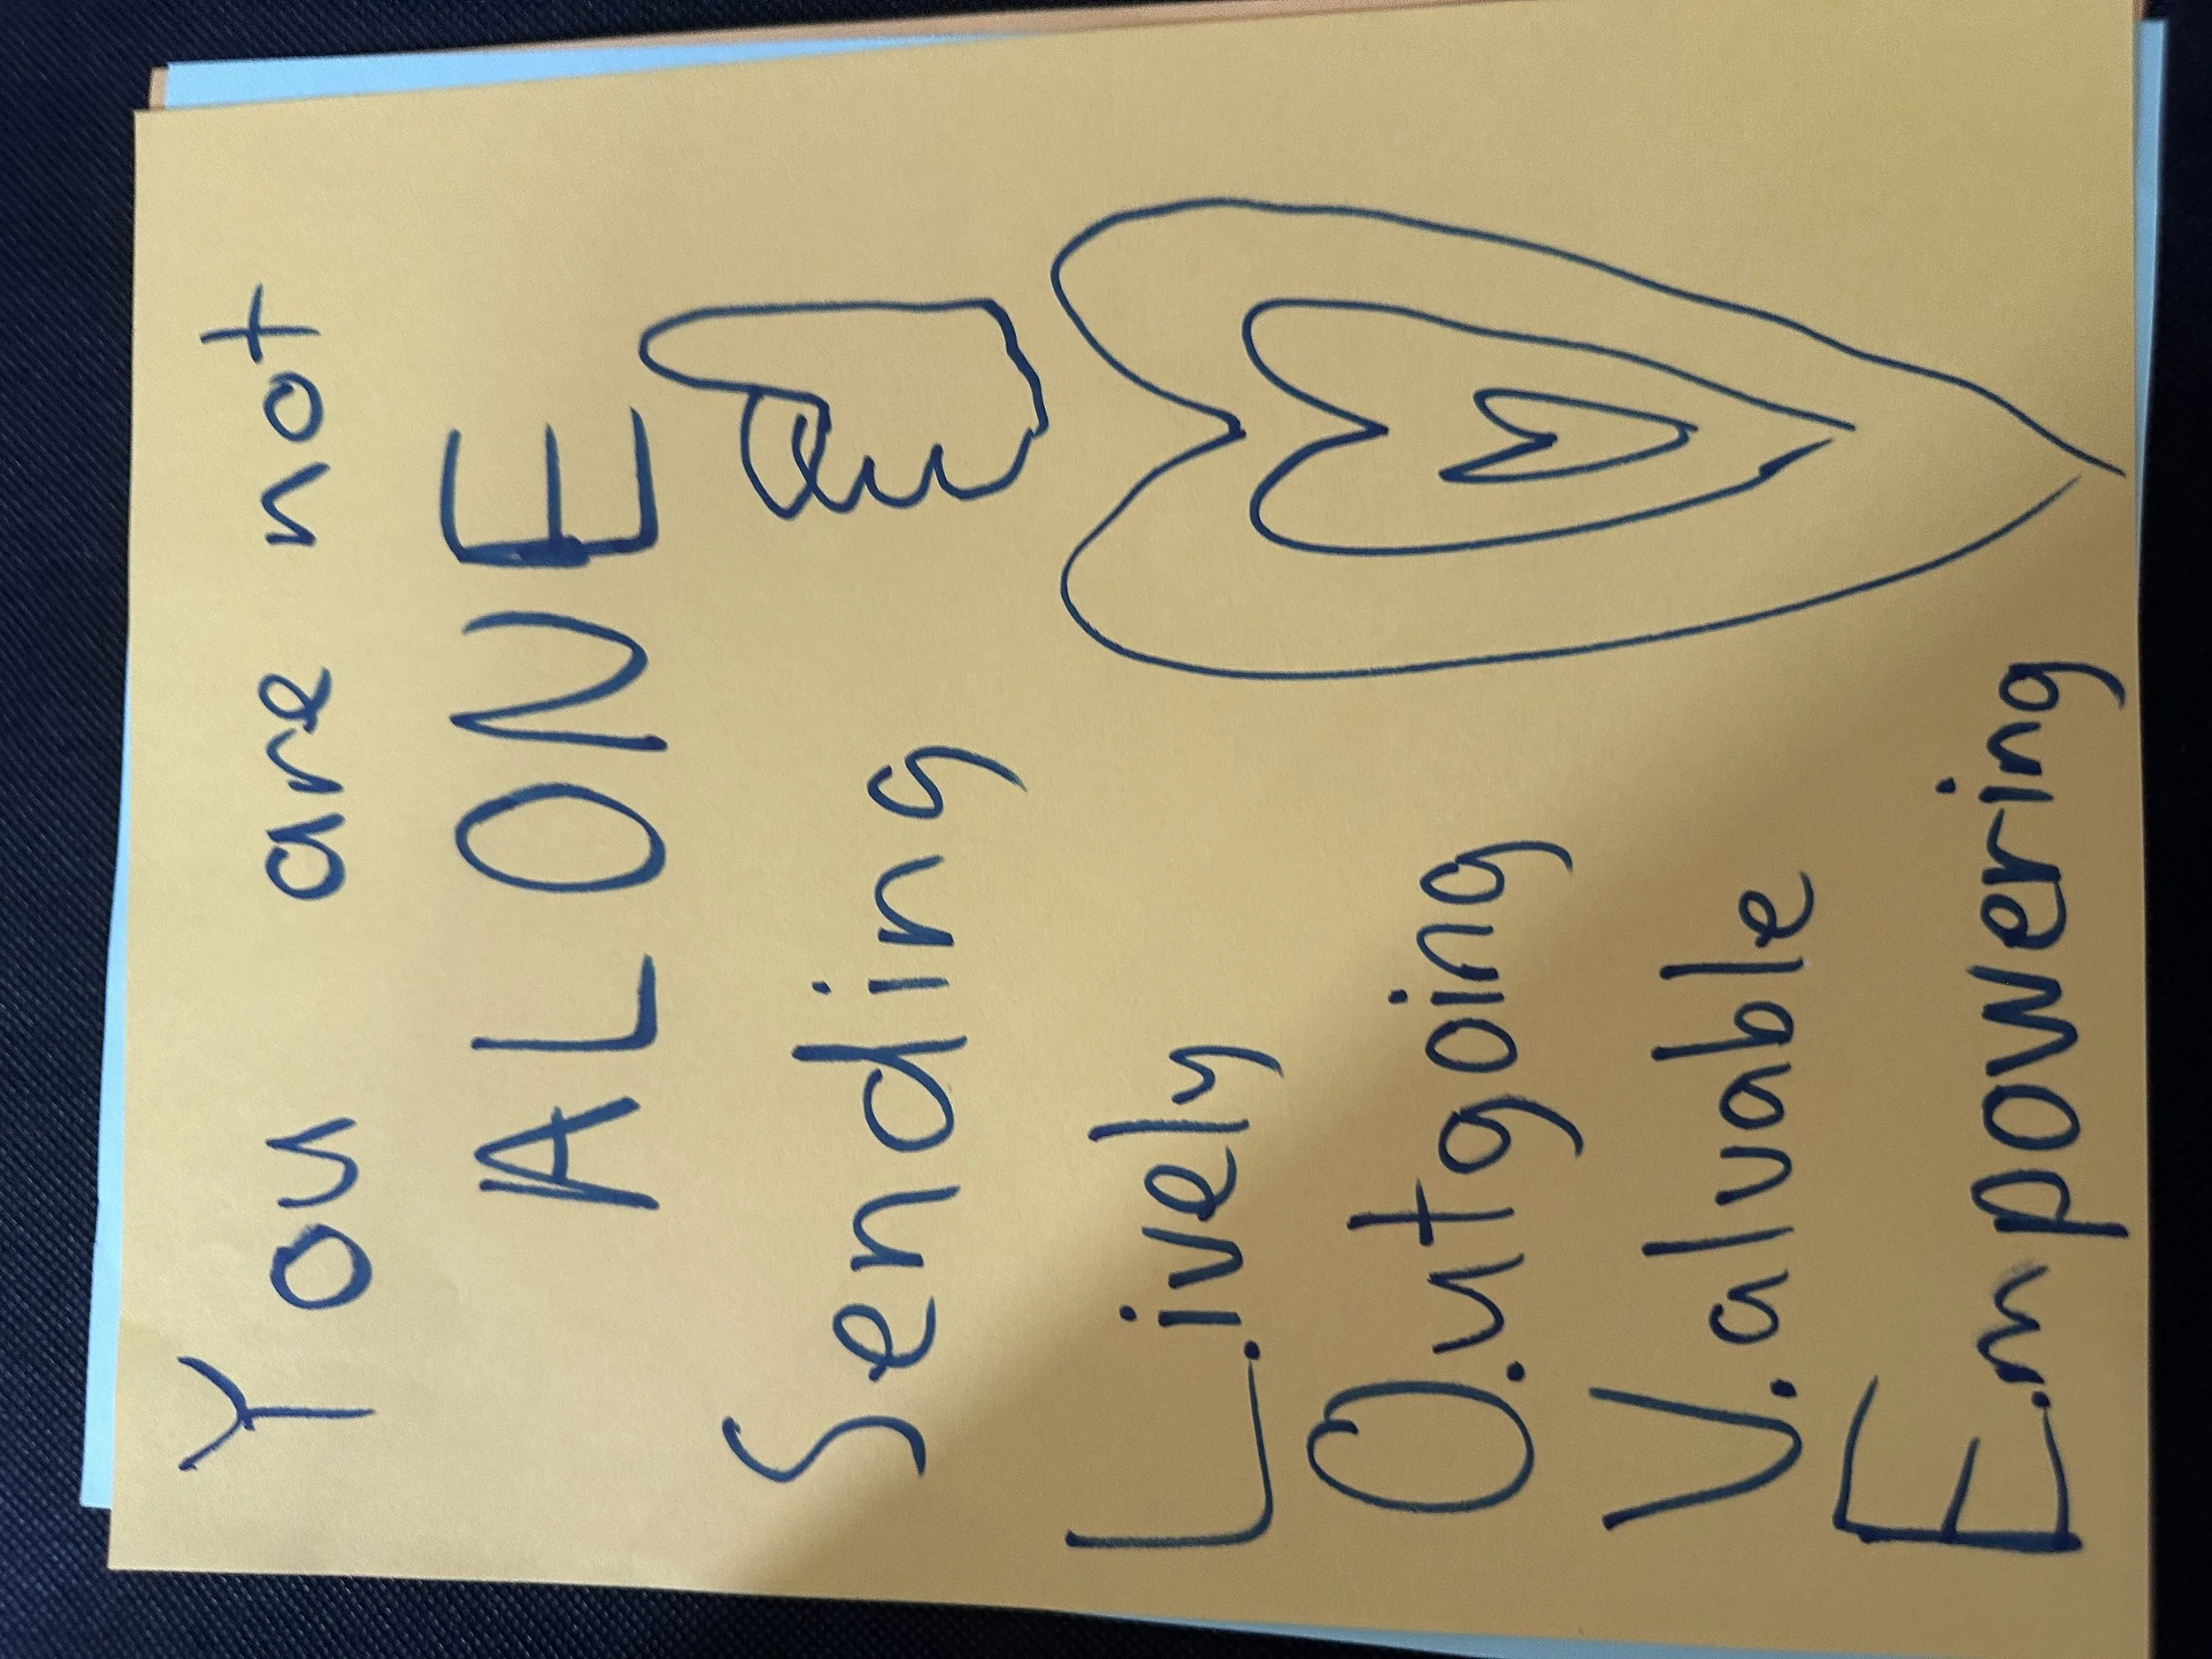 You are not
ALONE
Sending
L.ively
O.utgoing
V.aluable
E.mpowering